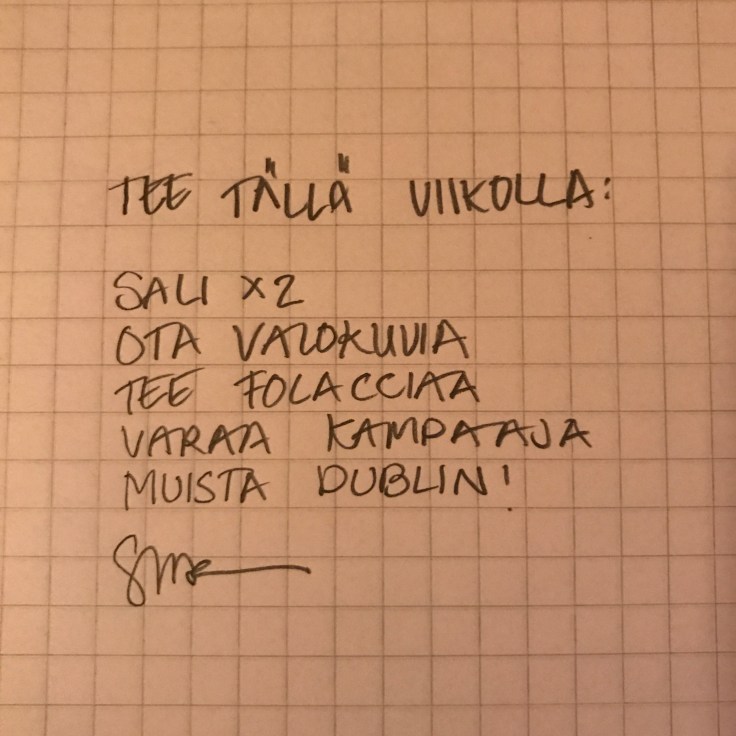 TEE TÄLLÄ VIIKOLLA:
SALI X2
OTA VALOKUVIA
TEE FOLACCIAA
VARAA KAMPAAJA
MUISTA DUBLIN!